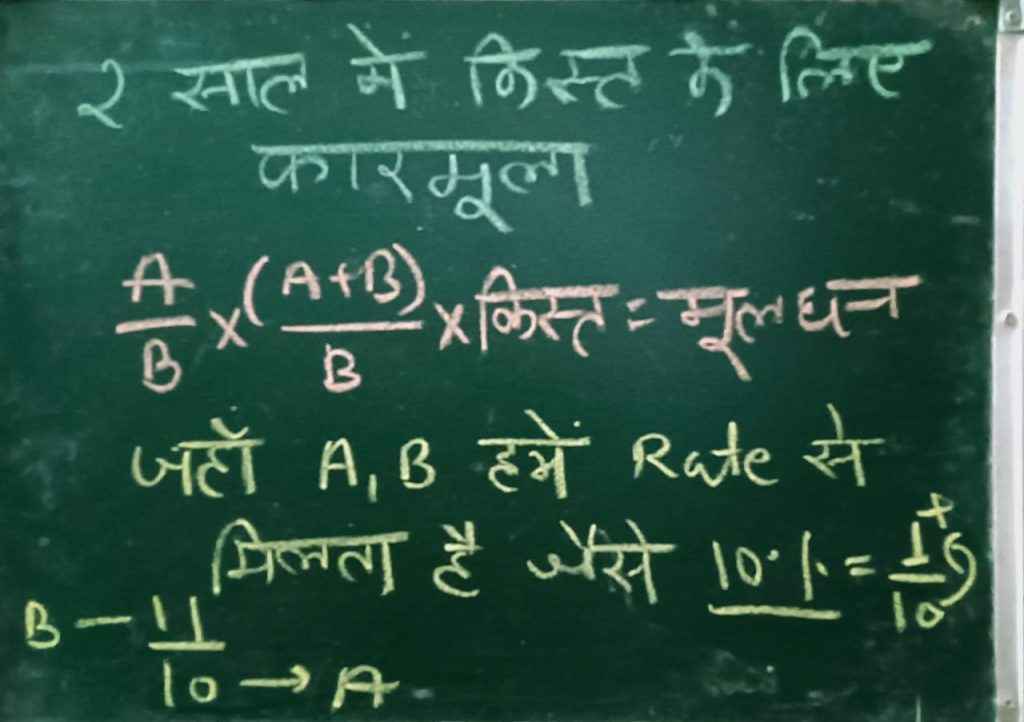 २ साल में किस्त के लिए
फारमूला
A/B × (A+B)/B × किस्त = मूलधन
जहाँ A, B हमें Rate से
मिलता है जैसे 10% = 1/10 +
B — 11/10 → A